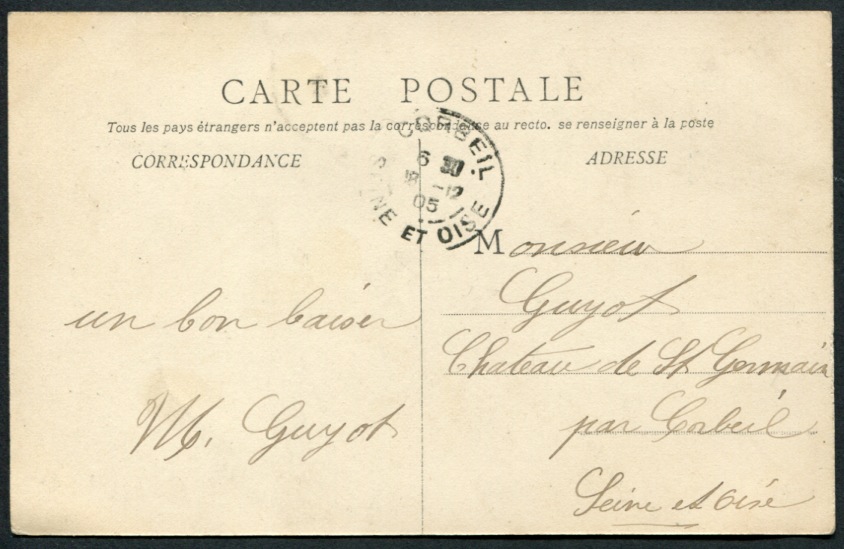 CARTE POSTALE
Tous les pays étrangers n'acceptent pas la correspondance au recto. se renseigner à la poste
CORRESPONDANCE
ADRESSE
CORBEIL
6 30
18 -12
05
SEINE ET OISE
un bon baiser
M. Guyot
Monsieur
Guyot
Chateau de St Germain
par Corbeil
Seine et oise